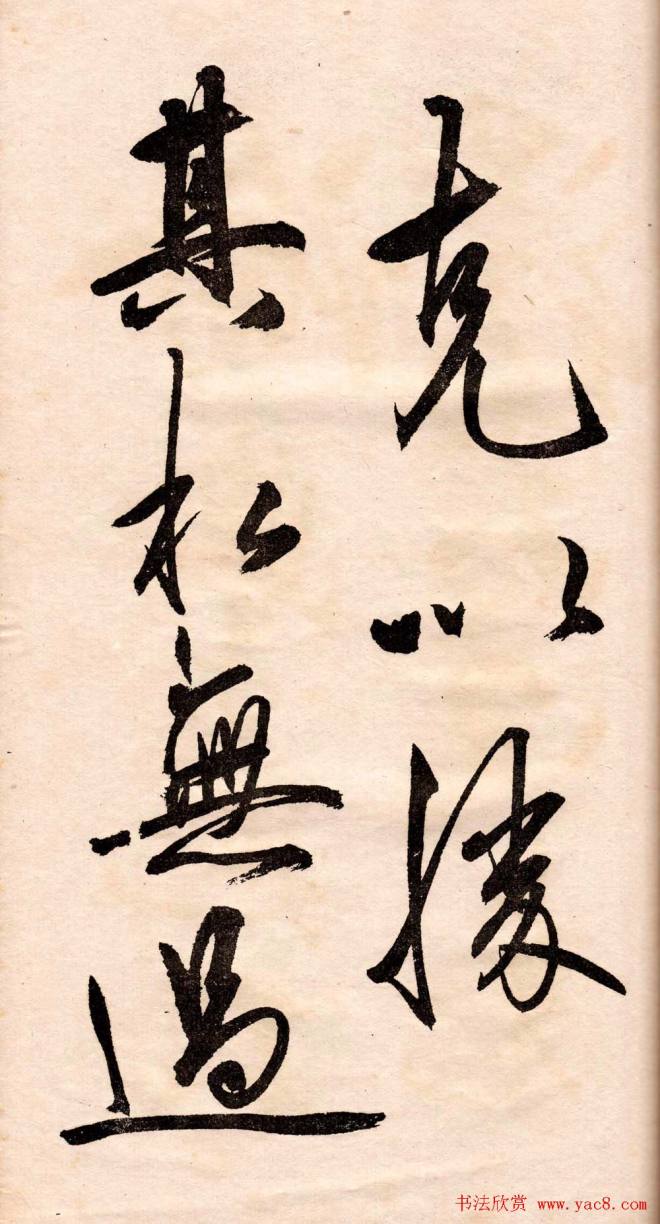 克以勝
其私無過
书法欣赏 www.yac8.com